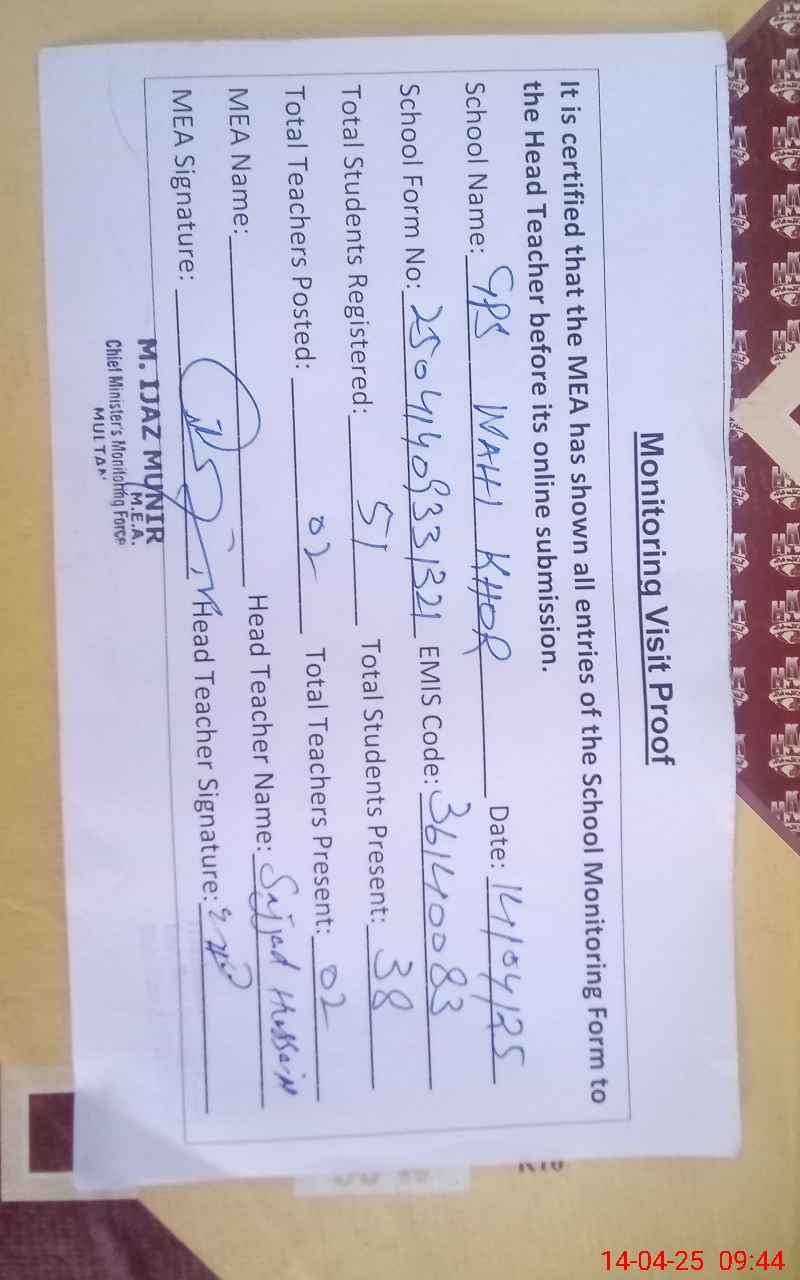 Monitoring Visit Proof
It is certified that the MEA has shown all entries of the School Monitoring Form to
the Head Teacher before its online submission.
School Name: GPS WAHI KHOR Date: 14/04/25
School Form No: 25041409331321 EMIS Code: 36140083
Total Students Registered: 51 Total Students Present: 38
Total Teachers Posted: 02 Total Teachers Present: 02
MEA Name: Head Teacher Name: Sajjad Hussain
MEA Signature: Head Teacher Signature:
M. IJAZ MUNIR
M.E.A.
Chief Minister's Monitoring Force
MULTAN
14-04-25 09:44